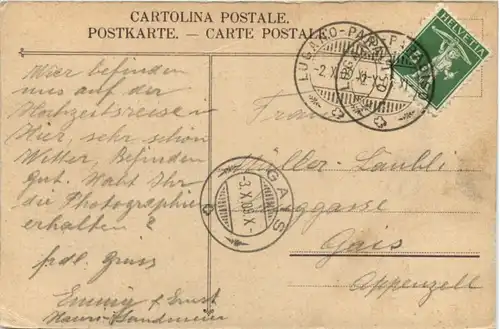 CARTOLINA POSTALE.
POSTKARTE. — CARTE POSTALE.
HELVETIA
LUGANO-PARADISO
-2.X
GAIS
-3.X.09.X-
Wier befinden
uns auf der
Hochzeitsreise
Hier, sehr schön
Witter, Befinden
gut. Habt Ihr
die Photographie
erhalten?
frdl. Gruss
Emmy & Ernst
Frau
Müller-Täubli
Gais
Appenzell